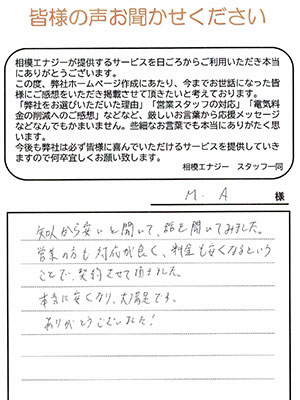 皆様の声お聞かせください
相模エナジーが提供するサービスを日ごろからご利用いただき本当
にありがとうございます。
この度、弊社ホームページ作成にあたり、今までお世話になった皆
様にご感想をいただき掲載させて頂きたいと考えております。
「弊社をお選びいただいた理由」「営業スタッフの対応」「電気料
金の削減へのご感想」などなど、厳しいお言葉から応援メッセージ
などなんでもかまいません。些細なお言葉でも本当にありがたく思
います。
今後も弊社は必ず皆様に喜んでいただけるサービスを提供していき
ますので何卒宜しくお願い致します。
相模エナジー スタッフ一同
M. A 様
知人から安いと聞いて、話を聞いてみました。
営業の方も対応が良く、料金も安くなるという
ことで、契約させて頂きました。
本当に安くなり、大満足です。
ありがとうございました!